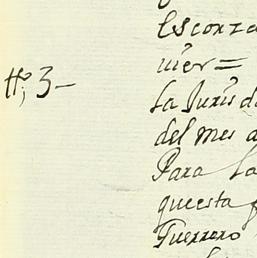 Escorza
uier =
Nº; 3 –
La Juris d
del mes d
Para La
questa
Guerrero